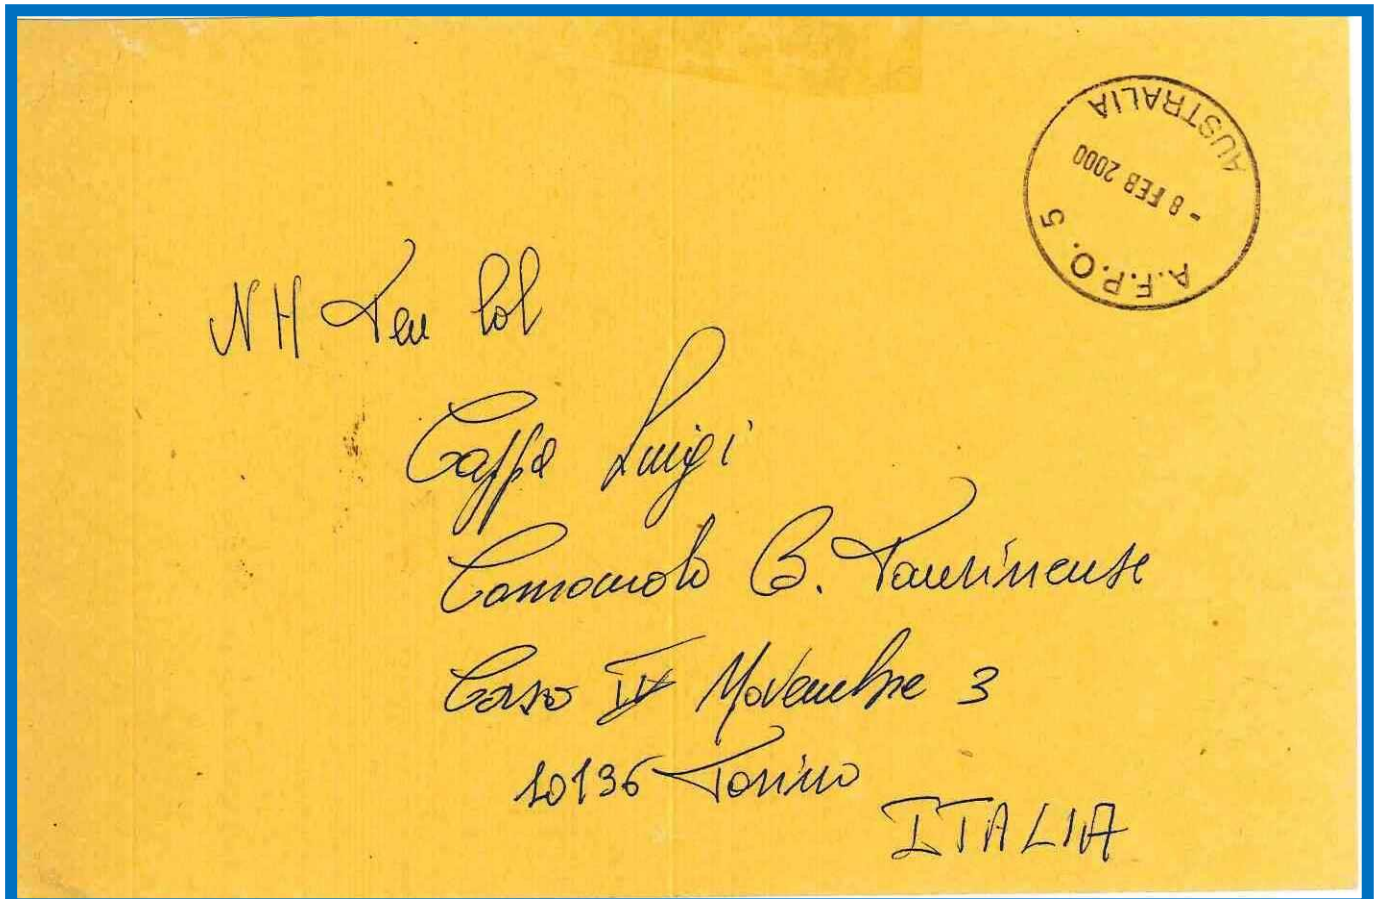 AUSTRALIA
- 8 FEB 2000
A.F.P.O. 5
NH Ten Col
Caffa Luigi
Comando B. Taurinense
Corso IV Novembre 3
10136 Torino
ITALIA